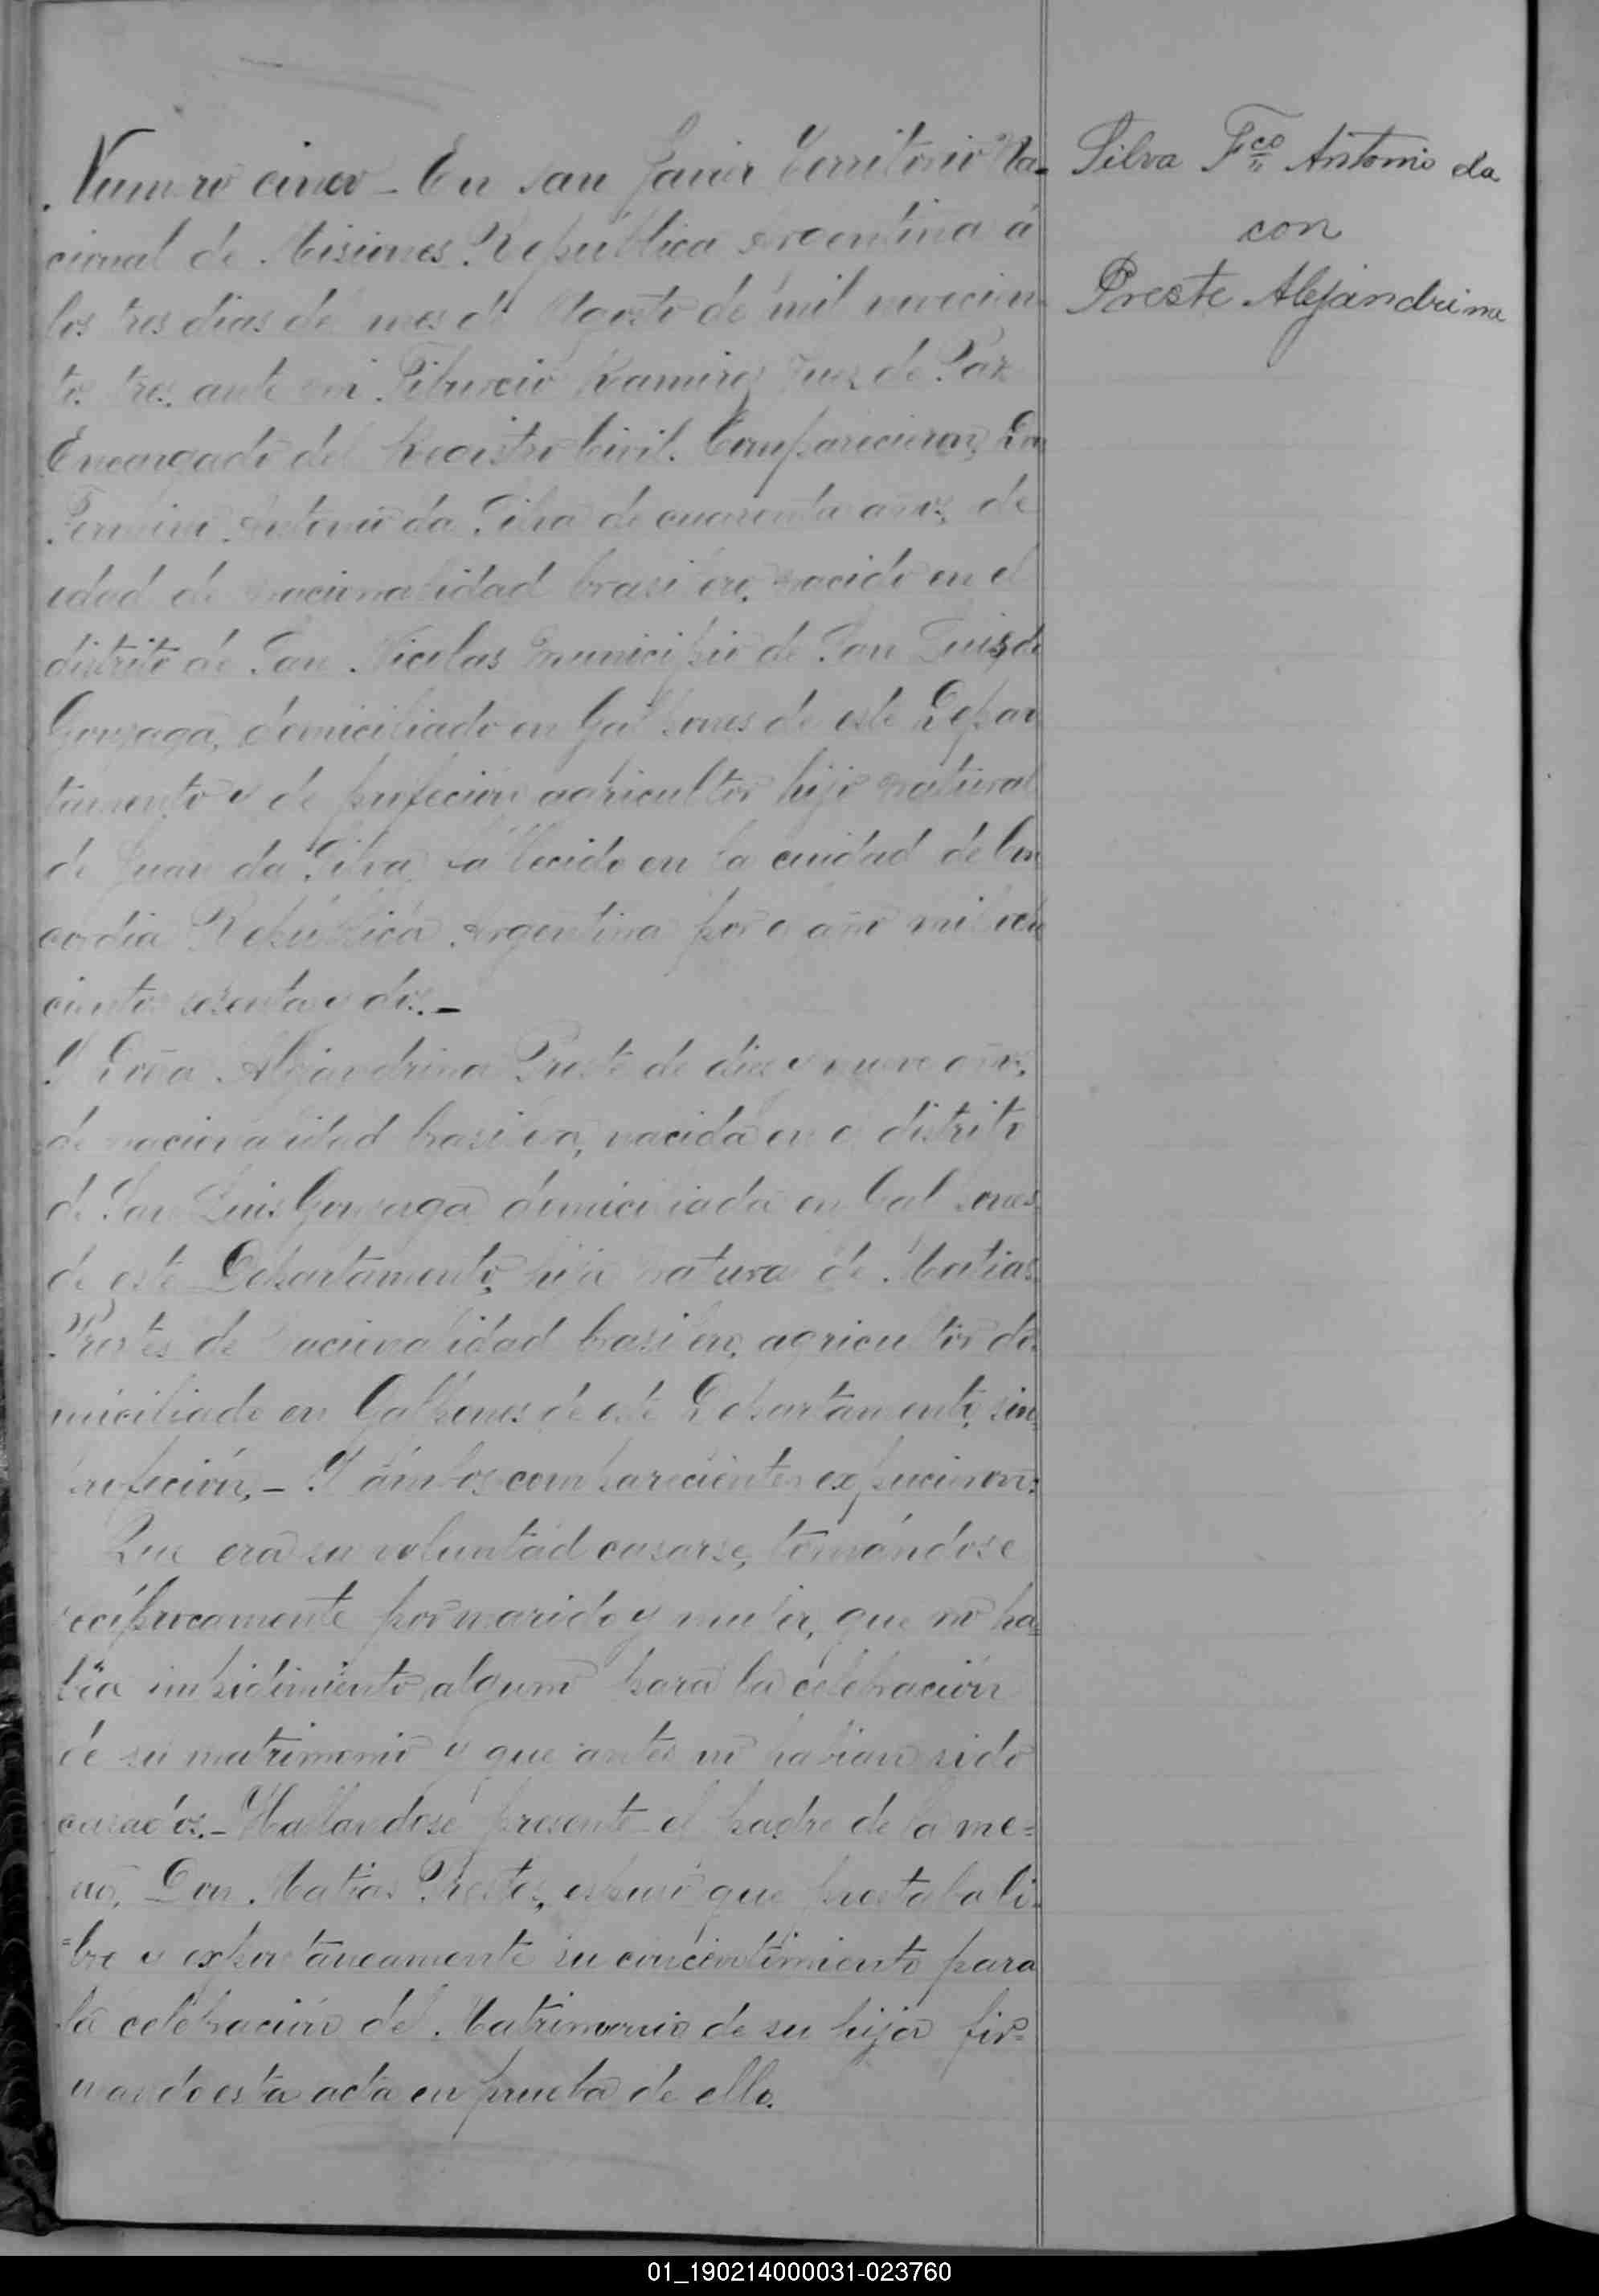 Numero cinco - En san Javier Territorio Na-
cional de Misiones República Argentina á
los tres dias del mes de Agosto de mil novecien-
tos tres, ante mi Tiburcio Ramirez Juez de Paz
Encargado del Registro Civil. Comparecieron, Don
Antonio da Silva de cuarenta años, de
edad de nacionalidad brasilero, nacido en el
distrito de San Nicolas municipio de San Luis de
Gonzaga, domiciliado en Galpones de este Depar
tamento y de profeción agricultor hijo natural
de Juan da Silva, fallecido en la ciudad de Con
cordia República Argentina por el año mil och
cientos sesenta y dos. -
Y Doña Alejandrina Preste de diez y nueve años,
de nacionalidad brasilera, nacida en el distrito
de San Luis Gonzaga domiciliada en Galpones
de este Departamento, hija natural de Matias
Prestes de nacionalidad brasilero, agricultor do-
miciliado en Galpones de este Departamento, sin
profeción. - Y ámbos comparecientes expucieron:
Que era su voluntad casarse, tomándose
recíprocamente por marido y mujer, que no ha-
bía impidimiento algúno para la celebración
de su matrimonio y que antes no habian sido
casados. - Hallandose presente el padre de la me=
nor, Don Matias Prestes, espuso que prestaba li-
=bre y expontáneamente su concentimiento para
la celebración del Matrimonio de su hija fir=
mando esta acta en prueba de ello.
Silva Fco Antonio da
con
Preste Alejandrina
01_190214000031-023760